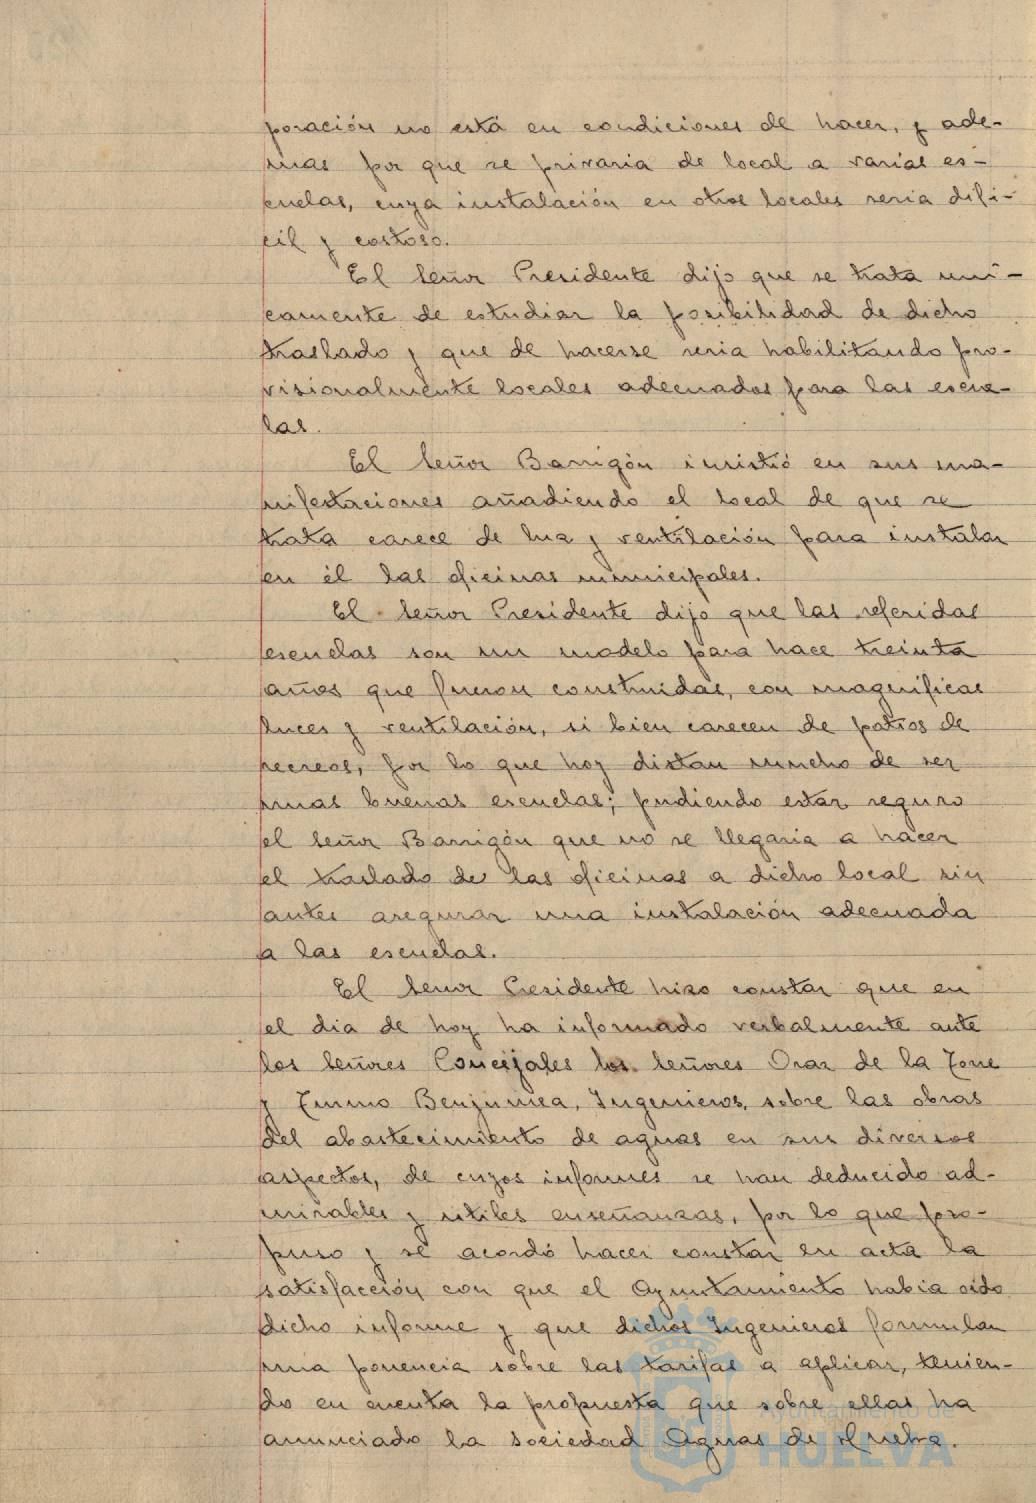 poración no está en condiciones de hacer, y ade-
mas por que se privaria de local a varias es-
cuelas, cuya instalación en otros locales seria difi-
cil y costoso.
El Señor Presidente dijo que se trata uni-
camente de estudiar la posibilidad de dicho
traslado y que de hacerse seria habilitando pro-
visionalmente locales adecuados para las escue-
las.
El Señor Barrigón insistió en sus ma-
nifestaciones añadiendo el local de que se
trata carece de luz y ventilación para instalar
en él las oficinas municipales.
El Señor Presidente dijo que las referidas
escuelas son un modelo para hace treinta
años que fueron construidas, con magnificas
luces y ventilación, si bien carecen de patios de
recreos, por lo que hoy distan mucho de ser
unas buenas escuelas; pudiendo estar seguro
el Señor Barrigón que no se llegaria a hacer
el traslado de las oficinas a dicho local sin
antes asegurar una instalación adecuada
a las escuelas.
El Señor Presidente hizo constar que en
el dia de hoy ha informado verbalmente ante
los Señores Concejales los Señores Oraz de la Torre
y Zumo Benjumea, Ingenieros, sobre las obras
del abastecimiento de aguas en sus diversos
aspectos, de cuyos informes se han deducido ad-
mirables y utiles enseñanzas, por lo que pro-
puso y se acordó hacer constar en acta la
satisfacción con que el Ayuntamiento habia oido
dicho informe y que dichos Ingenieros formulan
una ponencia sobre las tarifas a aplicar, tenien-
do en cuenta la propuesta que sobre ellas ha
anunciado la Sociedad Aguas de Huelva.
Ayuntamiento de
HUELVA